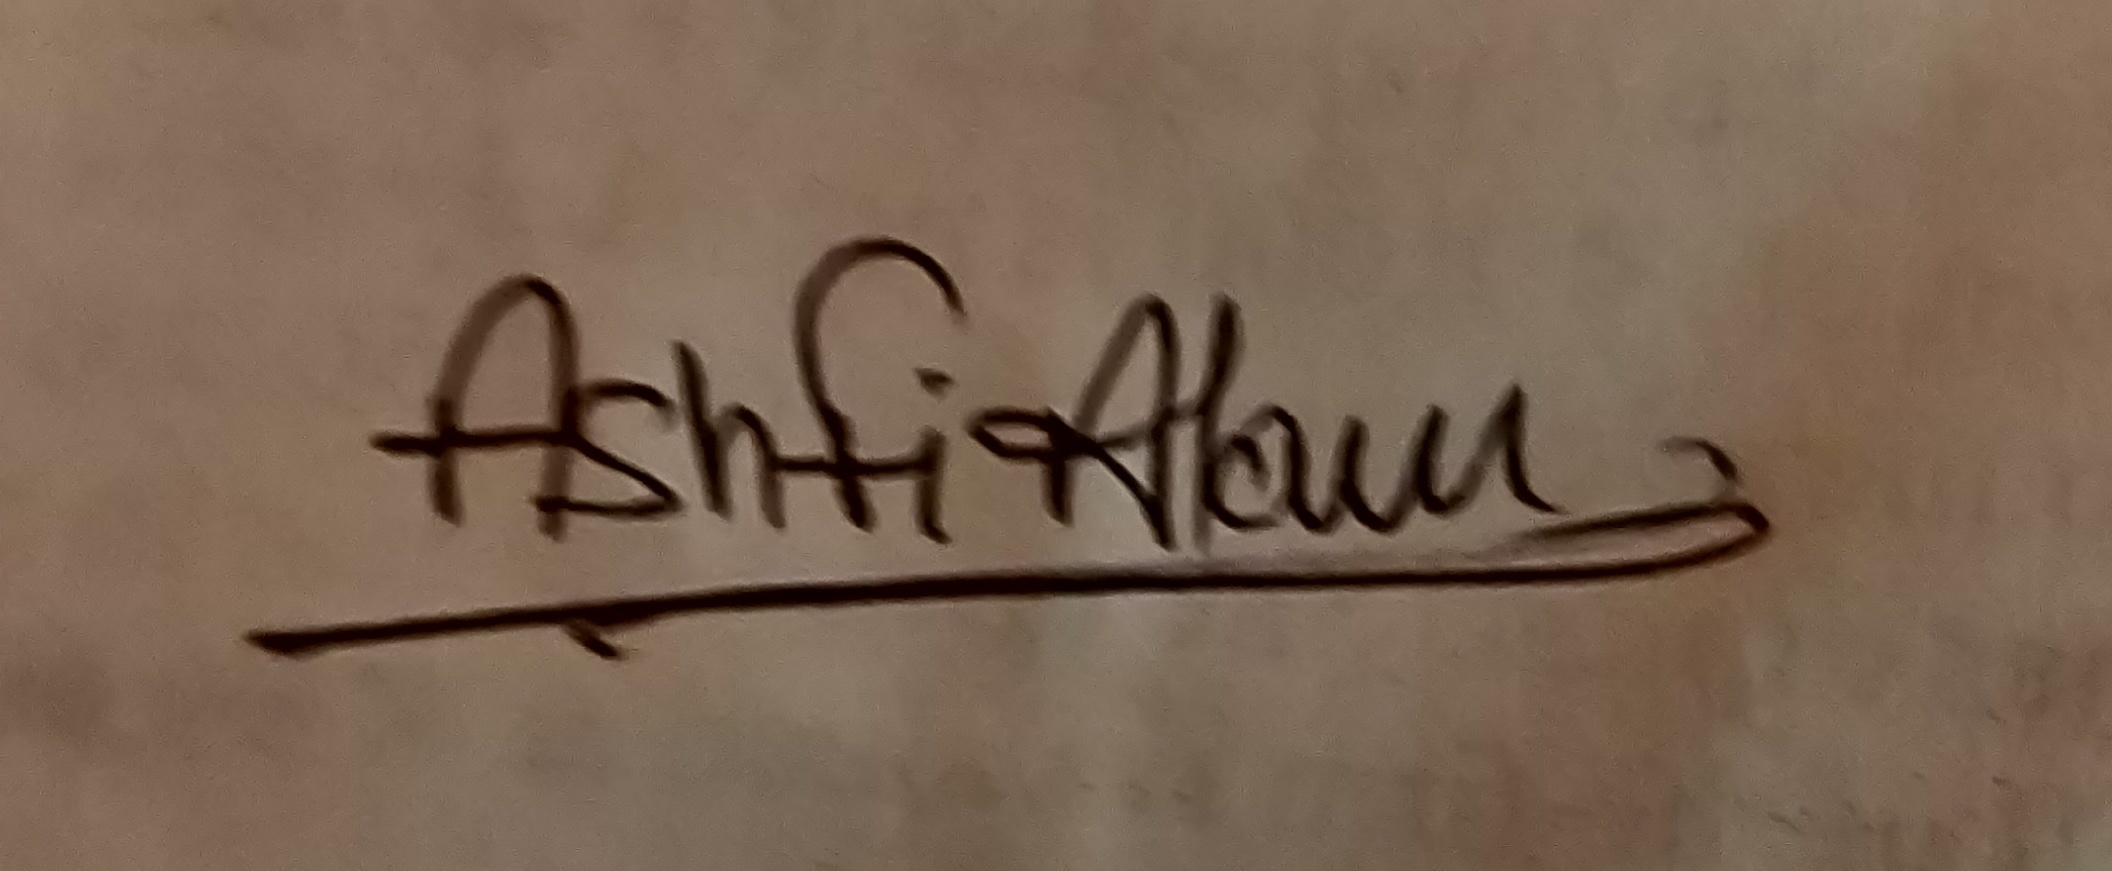 Ashfi Alam